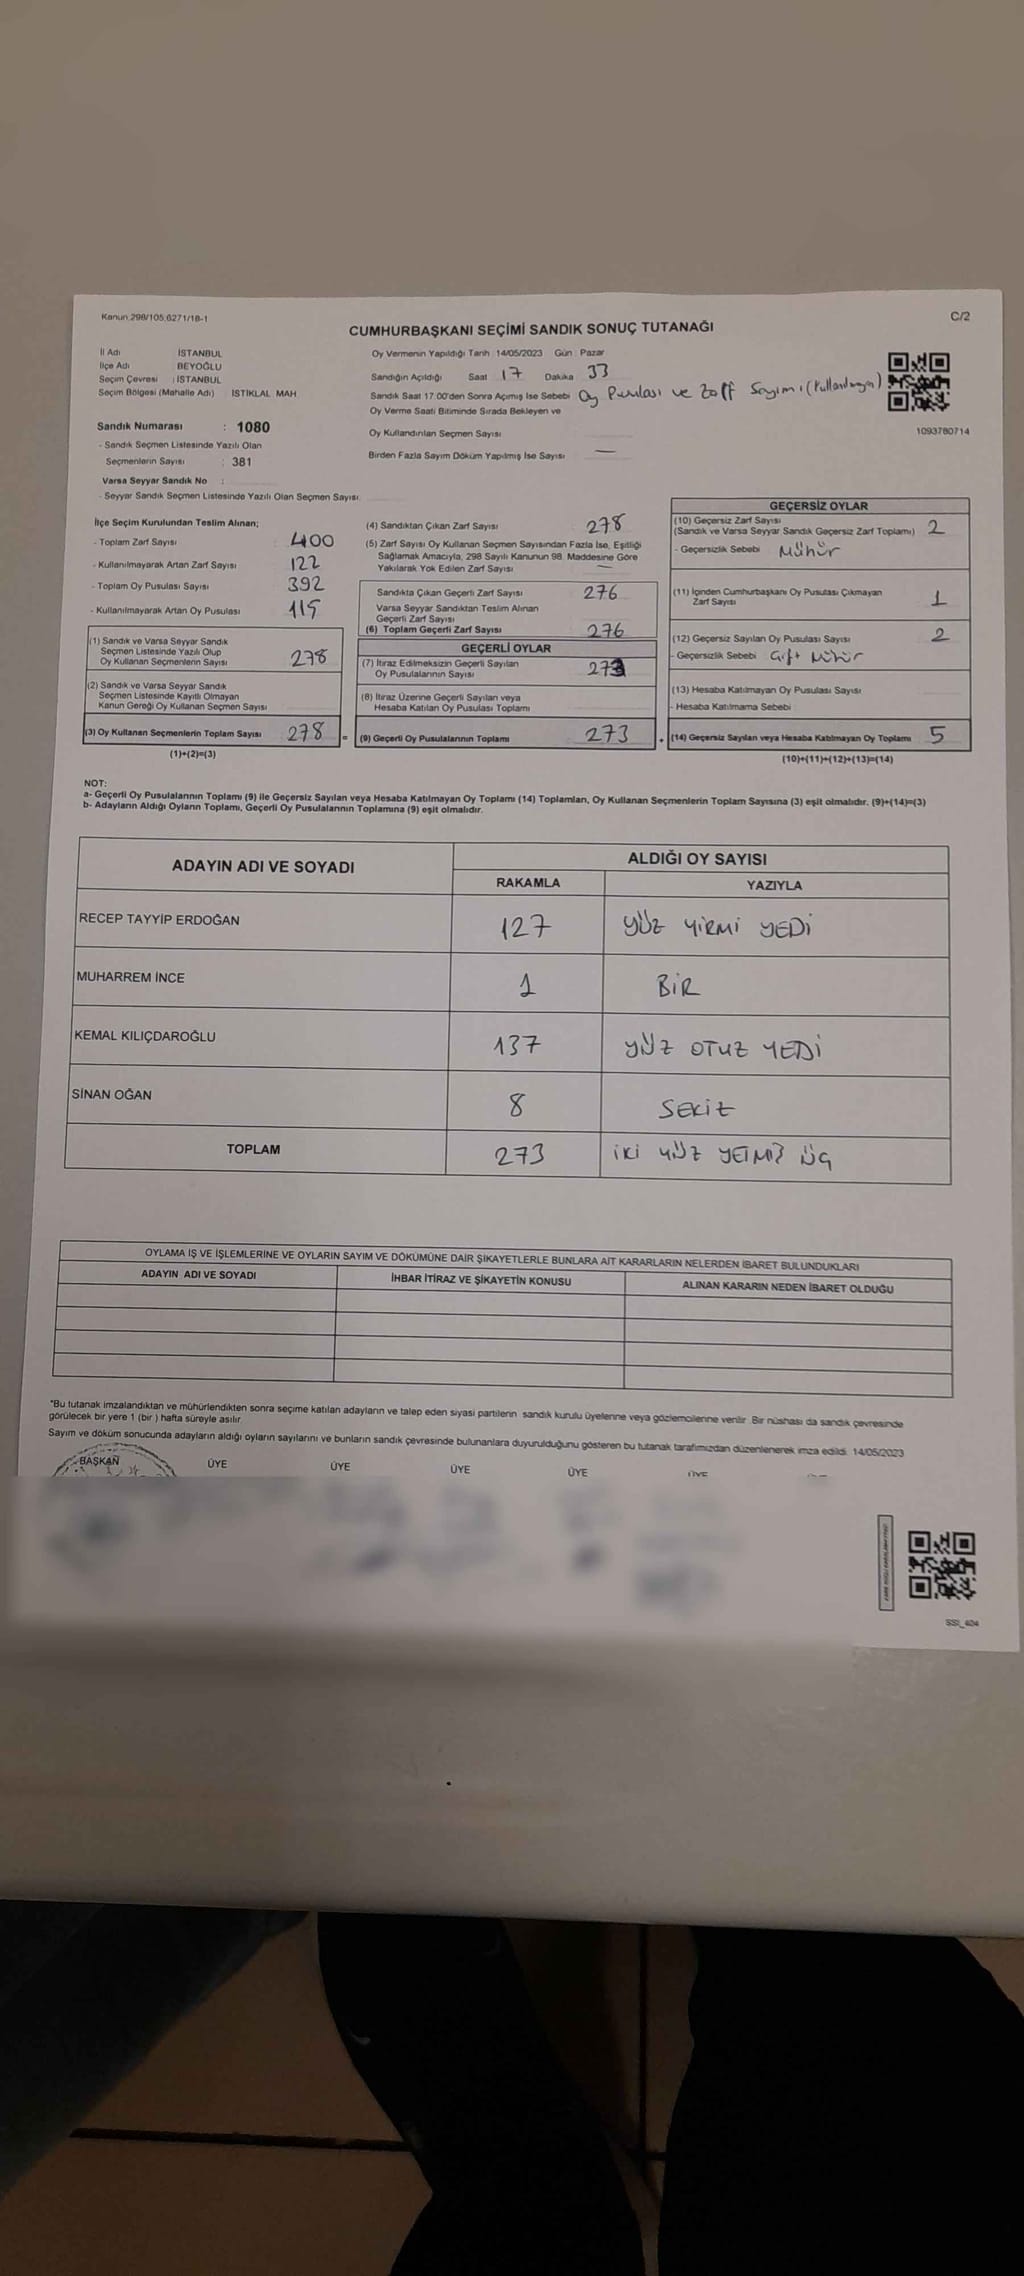 Kanun:298/105;6271/18-1
C/2
CUMHURBAŞKANI SEÇİMİ SANDIK SONUÇ TUTANAĞI
İl Adı İSTANBUL
İlçe Adı BEYOĞLU
Seçim Çevresi : İSTANBUL
Seçim Bölgesi (Mahalle Adı) İSTİKLAL MAH
Oy Vermenin Yapıldığı Tarih 14/05/2023 Gün : Pazar
Sandığın Açıldığı Saat 17 Dakika 33
Sandık Saat 17.00'den Sonra Açılmış İse Sebebi Oy Pusulası ve Zarf Sayımı
Oy Verme Saati Bitiminde Sırada Bekleyen ve
Oy Kullandırılan Seçmen Sayısı
Birden Fazla Sayım Döküm Yapılmış İse Sayısı —
1093780714
Sandık Numarası : 1080
- Sandık Seçmen Listesinde Yazılı Olan
Seçmenlerin Sayısı : 381
Varsa Seyyar Sandık No :
- Seyyar Sandık Seçmen Listesinde Yazılı Olan Seçmen Sayısı:
İlçe Seçim Kurulundan Teslim Alınan;
- Toplam Zarf Sayısı : 400
- Kullanılmayarak Artan Zarf Sayısı : 122
- Toplam Oy Pusulası Sayısı : 392
- Kullanılmayarak Artan Oy Pusulası :
(1) Sandık ve Varsa Seyyar Sandık
Seçmen Listesinde Yazılı Olup
Oy Kullanan Seçmenlerin Sayısı 278
(2) Sandık ve Varsa Seyyar Sandık
Seçmen Listesinde Kayıtlı Olmayan
Kanun Gereği Oy Kullanan Seçmen Sayısı
(3) Oy Kullanan Seçmenlerin Toplam Sayısı 278 =
(1)+(2)=(3)
(4) Sandıktan Çıkan Zarf Sayısı 278
(5) Zarf Sayısı Oy Kullanan Seçmen Sayısından Fazla İse, Eşitliği
Sağlamak Amacıyla, 298 Sayılı Kanunun 98. Maddesine Göre
Yakılarak Yok Edilen Zarf Sayısı —
Sandıkta Çıkan Geçerli Zarf Sayısı 276
Varsa Seyyar Sandıktan Teslim Alınan
Geçerli Zarf Sayısı
(6) Toplam Geçerli Zarf Sayısı 276
GEÇERLİ OYLAR
(7) İtiraz Edilmeksizin Geçerli Sayılan
Oy Pusulalarının Sayısı 273
(8) İtiraz Üzerine Geçerli Sayılan veya
Hesaba Katılan Oy Pusulası Toplamı
(9) Geçerli Oy Pusulalarının Toplamı 273 +
GEÇERSİZ OYLAR
(10) Geçersiz Zarf Sayısı
(Sandık ve Varsa Seyyar Sandık Geçersiz Zarf Toplamı) 2
- Geçersizlik Sebebi Mühür
(11) İçinden Cumhurbaşkanı Oy Pusulası Çıkmayan
Zarf Sayısı 1
(12) Geçersiz Sayılan Oy Pusulası Sayısı 2
- Geçersizlik Sebebi Çift Mühür
(13) Hesaba Katılmayan Oy Pusulası Sayısı
- Hesaba Katılmama Sebebi
(14) Geçersiz Sayılan veya Hesaba Katılmayan Oy Toplamı 5
(10)+(11)+(12)+(13)=(14)
NOT:
a- Geçerli Oy Pusulalarının Toplamı (9) ile Geçersiz Sayılan veya Hesaba Katılmayan Oy Toplamı (14) Toplamları, Oy Kullanan Seçmenlerin Toplam Sayısına (3) eşit olmalıdır. (9)+(14)=(3)
b- Adayların Aldığı Oyların Toplamı, Geçerli Oy Pusulalarının Toplamına (9) eşit olmalıdır.
ADAYIN ADI VE SOYADI ALDIĞI OY SAYISI
RAKAMLA YAZIYLA
RECEP TAYYİP ERDOĞAN 127 YÜZ YİRMİ YEDİ
MUHARREM İNCE 1 BİR
KEMAL KILIÇDAROĞLU 137 YÜZ OTUZ YEDİ
SİNAN OĞAN 8 SEKİZ
TOPLAM 273 İKİ YÜZ YETMİŞ ÜÇ
OYLAMA İŞ VE İŞLEMLERİNE VE OYLARIN SAYIM VE DÖKÜMÜNE DAİR ŞİKAYETLERLE BUNLARA AİT KARARLARIN NELERDEN İBARET BULUNDUKLARI
ADAYIN ADI VE SOYADI İHBAR İTİRAZ VE ŞİKAYETİN KONUSU ALINAN KARARIN NEDEN İBARET OLDUĞU
*Bu tutanak imzalandıktan ve mühürlendikten sonra seçime katılan adayların ve talep eden siyasi partilerin sandık kurulu üyelerine veya gözlemcilerine verilir. Bir nüshası da sandık çevresinde
görülecek bir yere 1 (bir ) hafta süreyle asılır.
Sayım ve döküm sonucunda adayların aldığı oyların sayılarını ve bunların sandık çevresinde bulunanlara duyurulduğunu gösteren bu tutanak tarafımızdan düzenlenerek imza edildi. 14/05/2023
BAŞKAN ÜYE ÜYE ÜYE ÜYE ÜYE
SSI_404